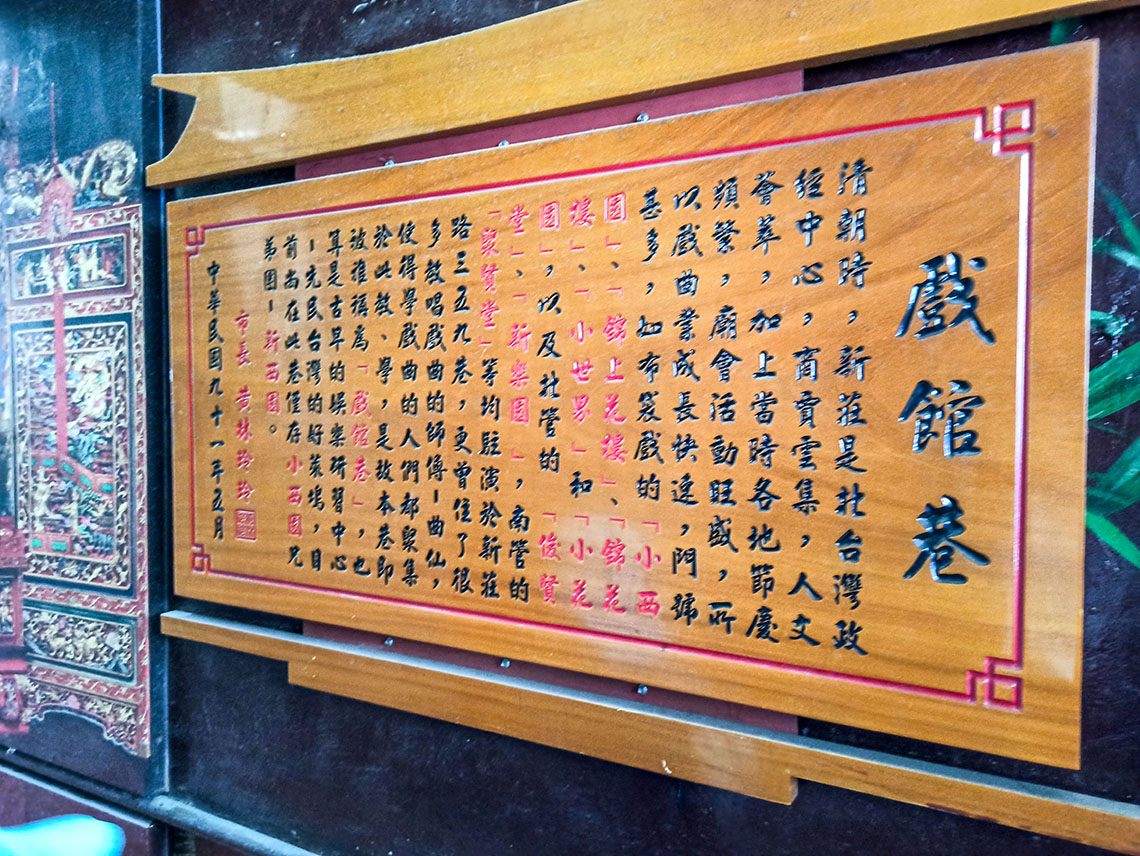 戲館巷
清朝時，新莊是北台灣政
經中心，商賈雲集，人文
薈萃，加上當時各地節慶
頻繁，廟會活動旺盛，所
以戲曲業成長快速，門號
甚多，如布袋戲的「小西
園」、「錦上花樓」、「錦花
樓」、「小世界」和「小花
園」，以及北管的「俊賢
堂」、「新樂園」，南管的
「聚賢堂」等均駐演於新莊
路三五九巷，更曾住了很
多教唱戲曲的師傅－曲仙，
使得學戲曲的人們都聚集
於此教、學，是故本巷即
被推稱為「戲館巷」，也
算是古早的娛樂研習中心
－元民台灣的好萊塢，目
前尚在此巷僅存小西園兄
弟團－新西園。
市長 黃林玲玲
中華民國九十一年五月